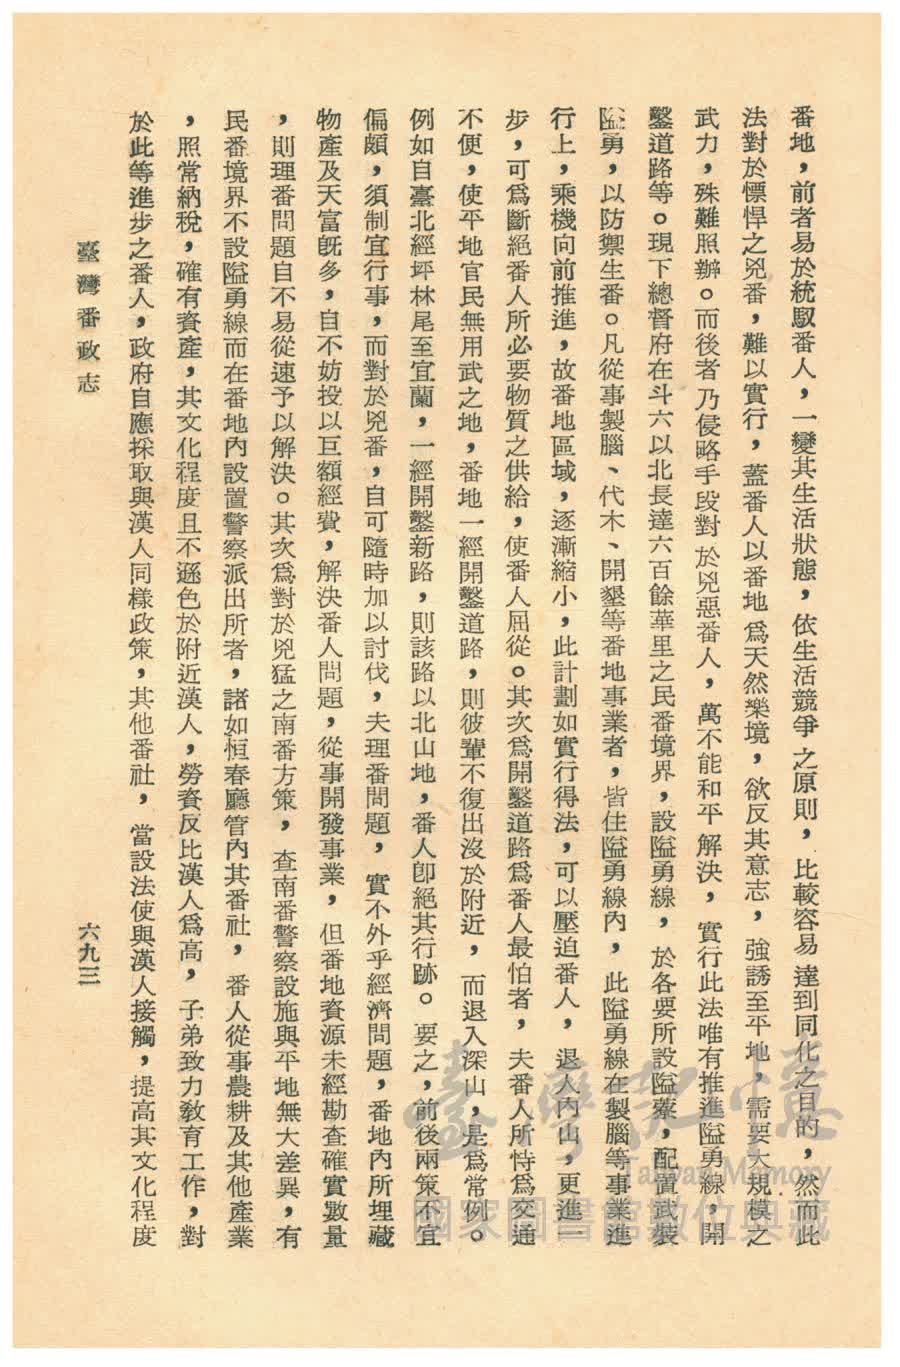 番地，前者易於統馭番人，一變其生活狀態，依生活競爭之原則，比較容易達到同化之目的，然而此
法對於慓悍之兇番，難以實行，蓋番人以番地爲天然樂境，欲反其意志，強誘至平地，需要大規模之
武力，殊難照辦。而後者乃侵略手段對於兇惡番人，萬不能和平解決，實行此法唯有推進隘勇線，開
鑿道路等。現下總督府在斗六以北長達六百餘華里之民番境界，設隘勇線，於各要所設隘藔，配置武裝
隘勇，以防禦生番。凡從事製腦、代木、開墾等番地事業者，皆住隘勇線內，此隘勇線在製腦等事業進
行上，乘機向前推進，故番地區域，逐漸縮小，此計劃如實行得法，可以壓迫番人，退入內山，更進一
步，可爲斷絕番人所必要物質之供給，使番人屈從。其次爲開鑿道路爲番人最怕者，夫番人所恃爲交通
不便，使平地官民無用武之地，番地一經開鑿道路，則彼輩不復出沒於附近，而退入深山，是爲常例。
例如自臺北經坪林尾至宜蘭，一經開鑿新路，則該路以北山地，番人卽絕其行跡。要之，前後兩策不宜
偏頗，須制宜行事，而對於兇番，自可隨時加以討伐，夫理番問題，實不外乎經濟問題，番地內所埋藏
物產及天富旣多，自不妨投以巨額經費，解決番人問題，從事開發事業，但番地資源未經勘查確實數量
，則理番問題自不易從速予以解決。其次爲對於兇猛之南番方策，查南番警察設施與平地無大差異，有
民番境界不設隘勇線而在番地內設置警察派出所者，諸如恒春廳管內其番社，番人從事農耕及其他產業
，照常納稅，確有資產，其文化程度且不遜色於附近漢人，勞資反比漢人爲高，子弟致力教育工作，對
於此等進步之番人，政府自應採取與漢人同樣政策，其他番社，當設法使與漢人接觸，提高其文化程度
臺灣番政志
六九三
臺灣記憶
Taiwan Memory
國家圖書館數位典藏